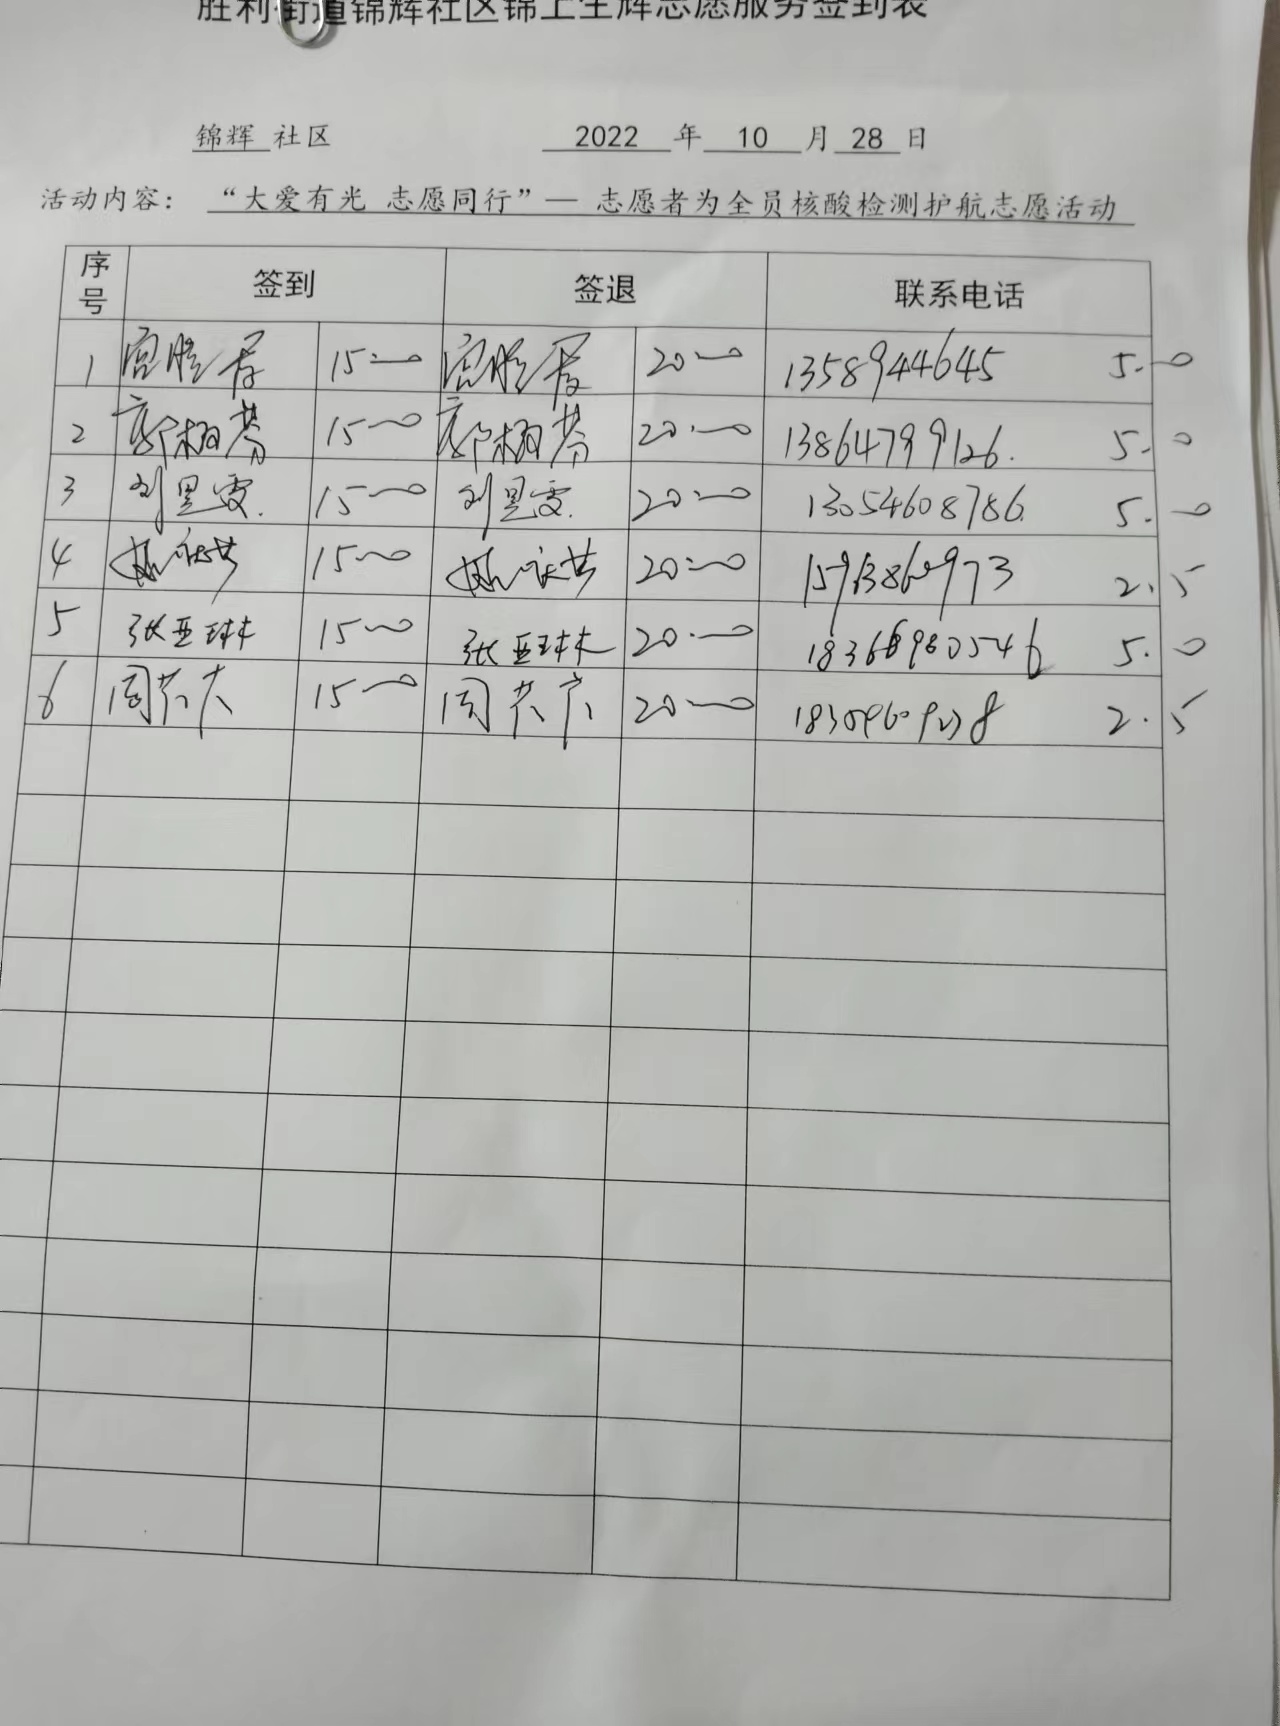 胜利街道锦辉社区锦上生辉志愿服务签到表
锦辉 社区 2022 年 10 月 28 日
活动内容： “大爱有光 志愿同行”— 志愿者为全员核酸检测护航志愿活动
序号 签到 签退 联系电话
1 15:00 20:00 13589444645 5.0
2 15:00 20:00 13864799126. 5.0
3 刘昱雯. 15:00 刘昱雯. 20:00 13054608786. 5.0
4 15:00 20:00 2.5
5 张亚琳 15:00 张亚琳 20:00 5.0
6 15:00 20:00 2.5